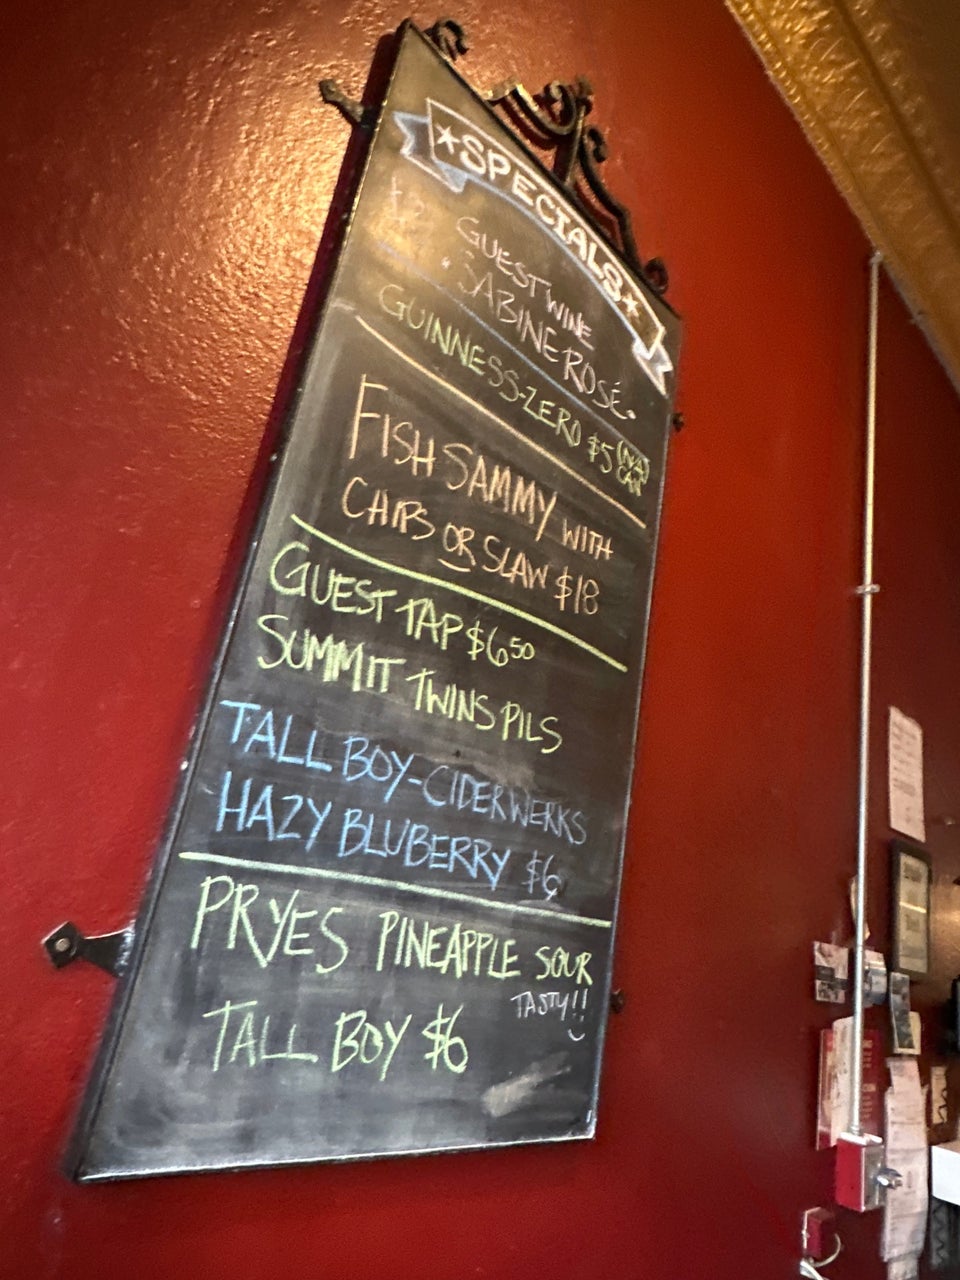 ★SPECIALS★
GUEST WINE
SABINE ROSÉ
GUINNESS-ZERO $5 (NA) CAN
FISH SAMMY WITH
CHIPS OR SLAW $18
GUEST TAP $6 50
SUMMIT TWINS PILS
TALL BOY-CIDERWERKS
HAZY BLUBERRY $6
PRYES PINEAPPLE SOUR
TASTY!!
TALL BOY $6